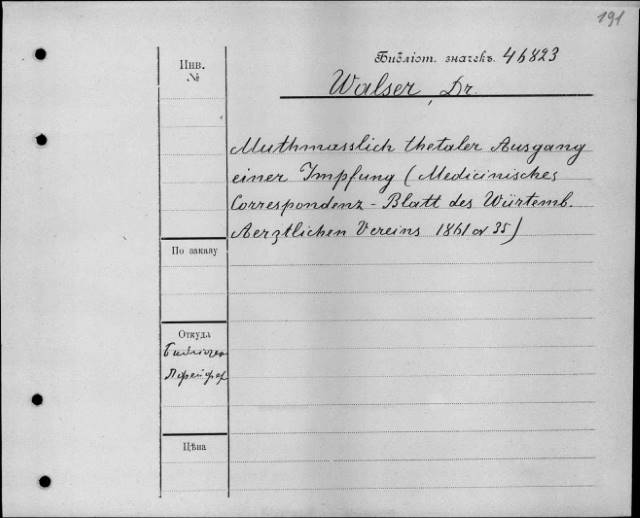 191
Библіот. значекъ. 46823
Инв.
№
Walser, Dr.
Muthmasslich thetaler Ausgang
einer Impfung (Medicinisches
Correspondenz-Blatt des Würtemb.
Aerztlichen Vereins 1861 № 35)
По заказу
Откуда
Пфейфер
Цѣна